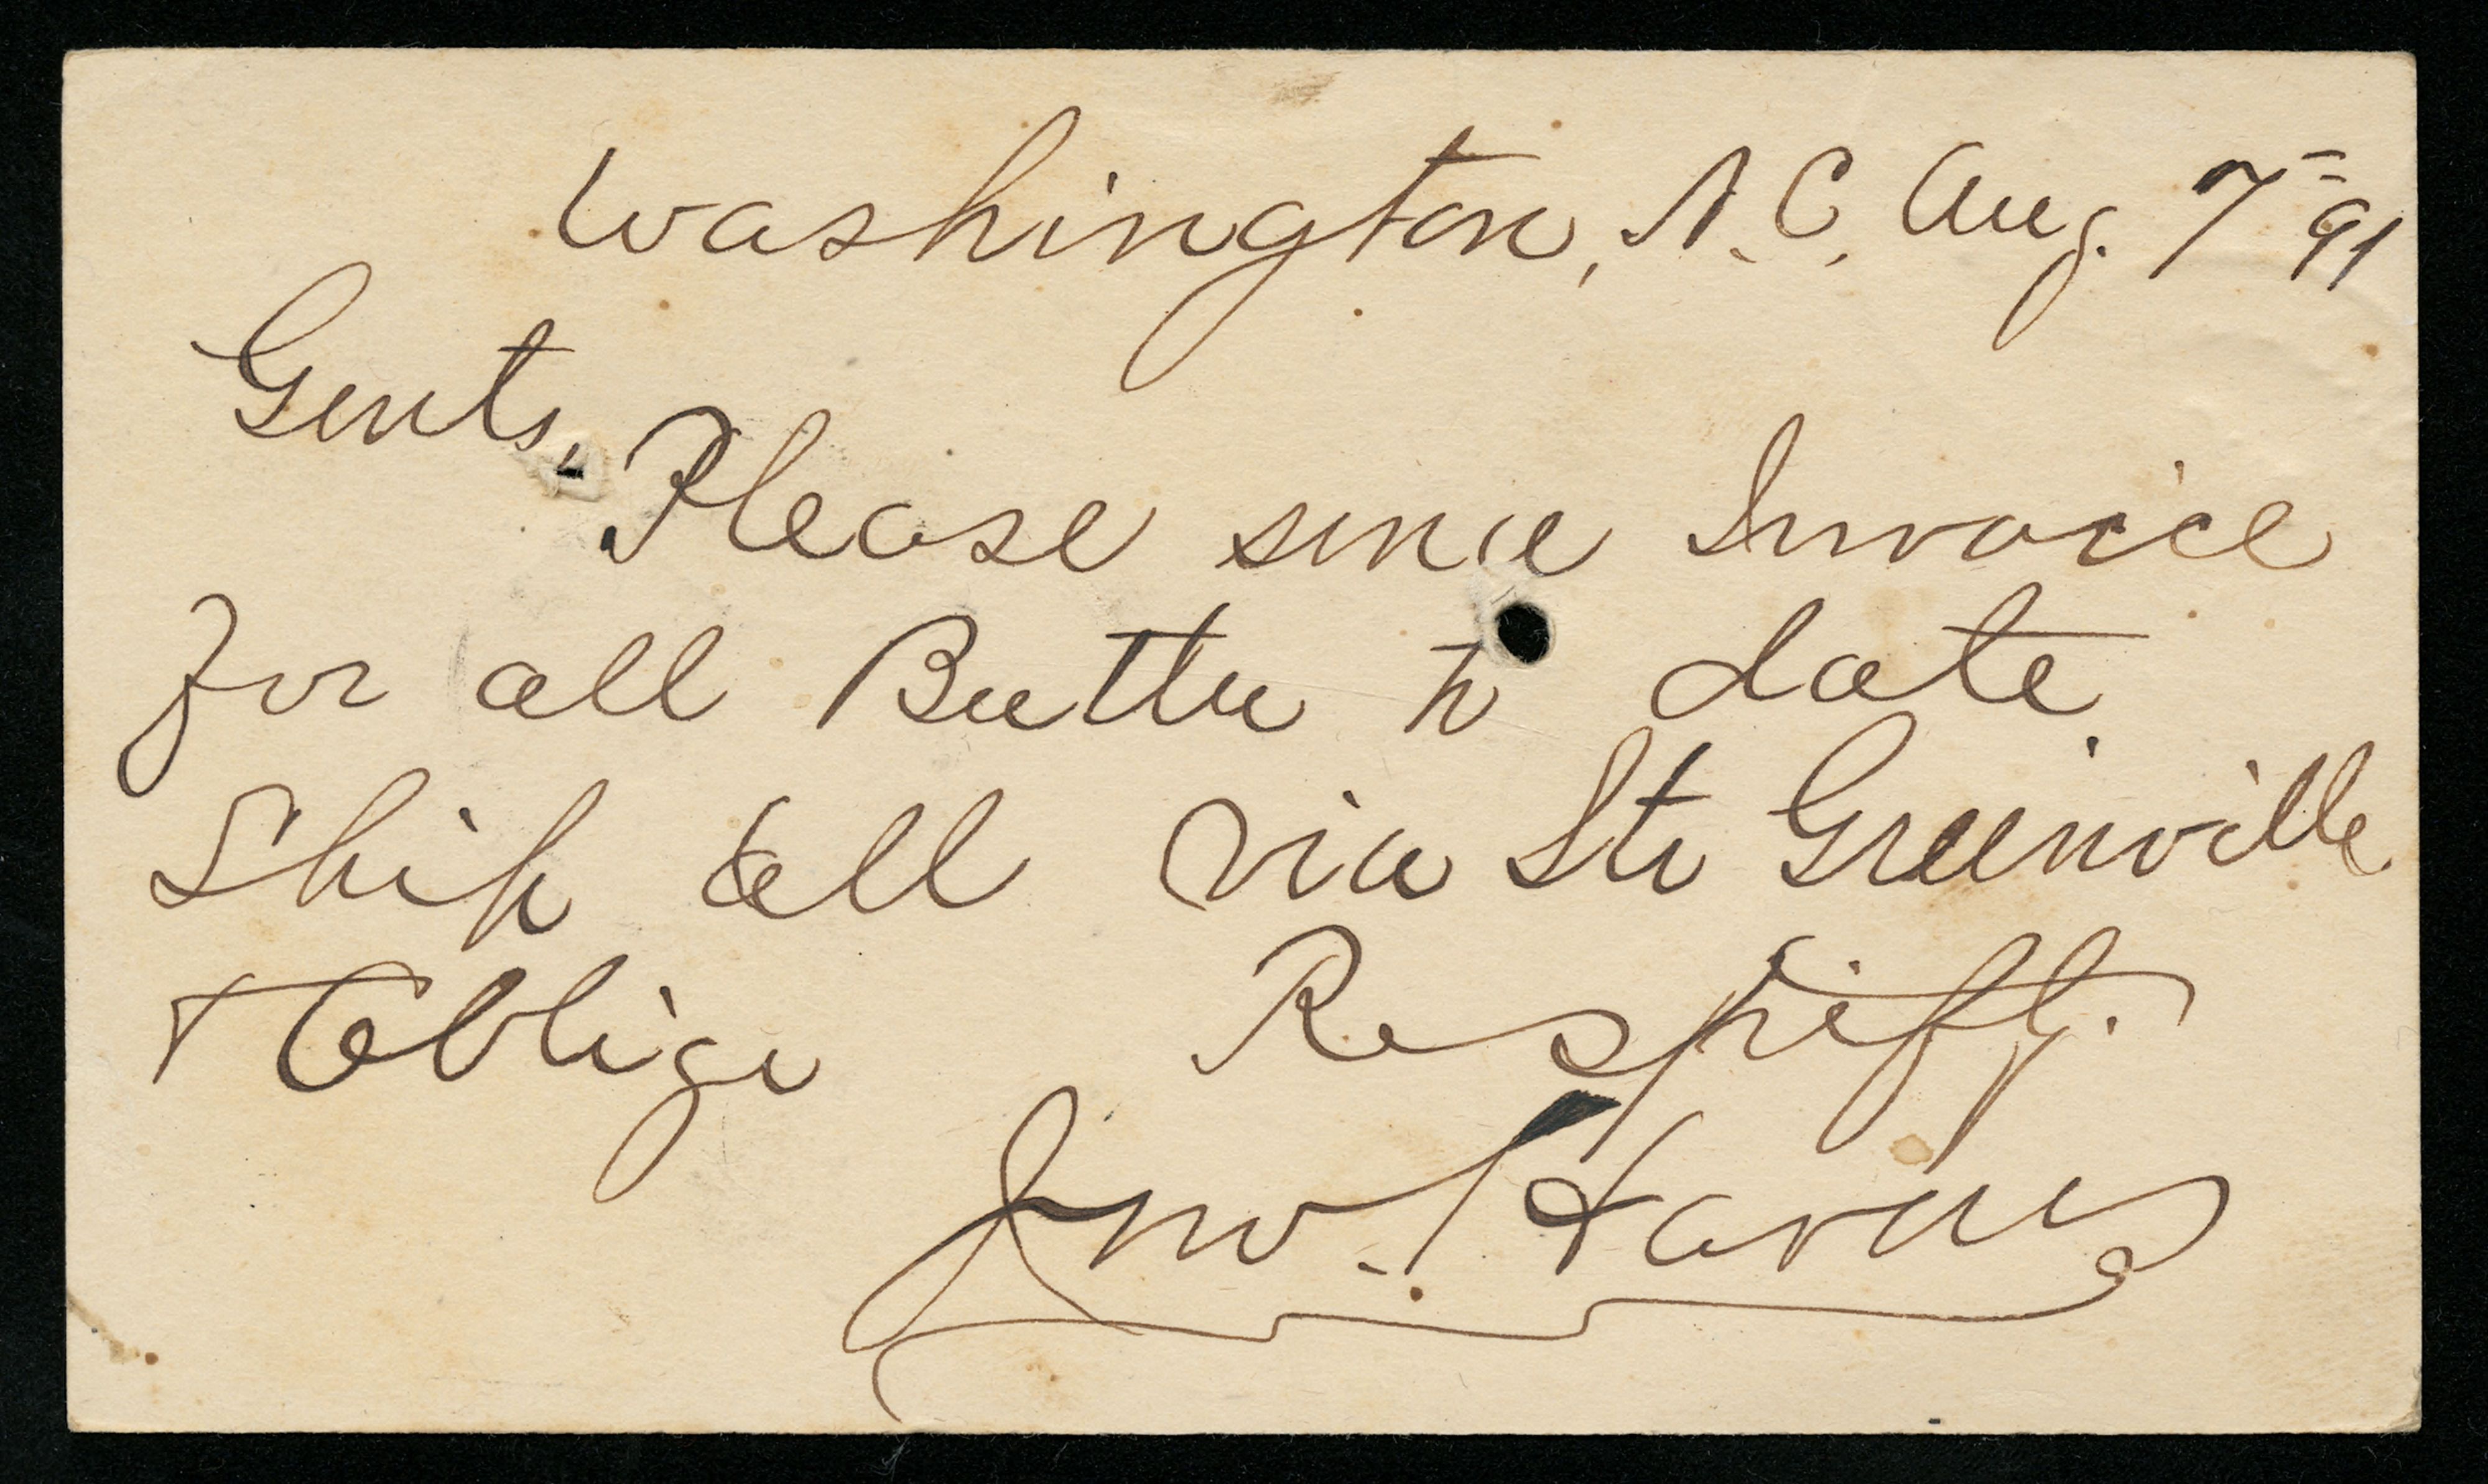 Washington, N.C. Aug. 7 = 91
Gents,
Please send Invoice
for all Butter to date.
Ship all via Str Greenville
+ Oblige Respectfly.
Jno. Havens